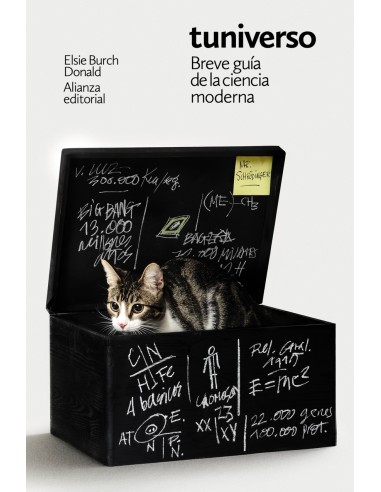 tuniverso
Elsie Burch
Donald
Alianza
editorial
Breve guía
de la ciencia
moderna
V. LUZ
300.000 Km/sg.
MR.
SCHRÖDINGER
BIG BANG
13.000
millones
años
CH3
C N
H Fe
4 básicos
AT
E.
N
P.N.
CROMOSOM
23
XX
XY
Rel. Gral.
1915
E=mc²
22.000 genes
100.000 prot.